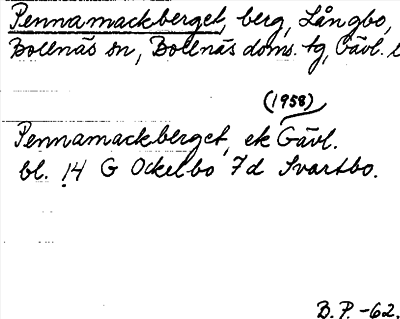 Pennamackberget, berg, Långbo,
Bollnäs sn, Bollnäs doms. tg, Gävl. l
(1958)
Pennamackberget, ek Gävl.
bl. 14 G Ockelbo 7d Svartbo.
B.P. -62.